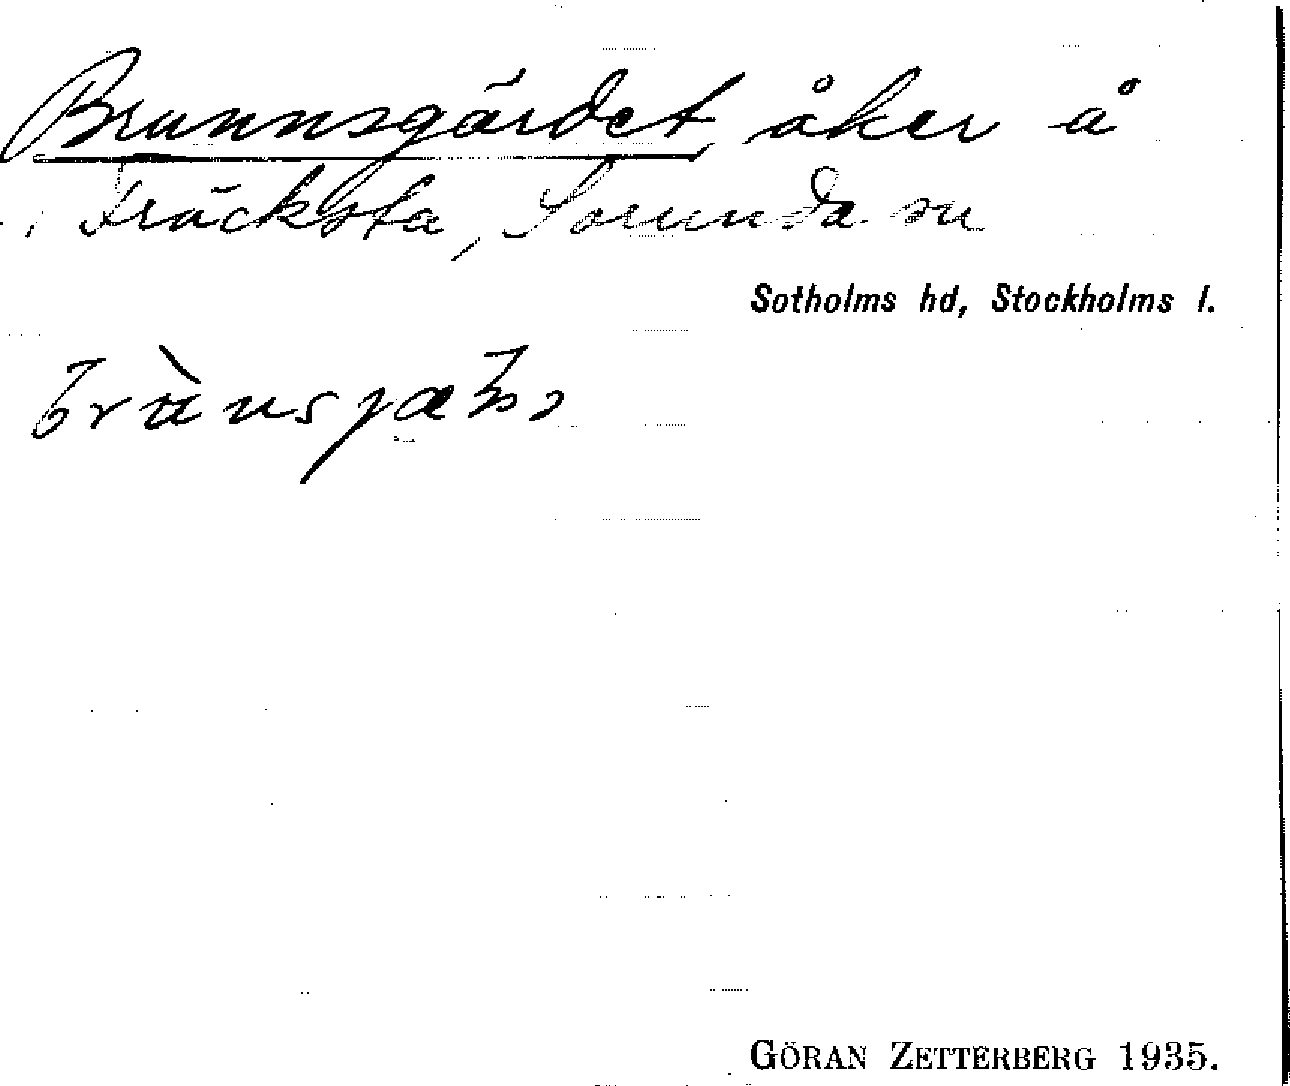 Brunnsgärdet, åker å
Träcksta, Sorunda sn
Sotholms hd, Stockholms l.
GÖRAN ZETTERBERG 1935.